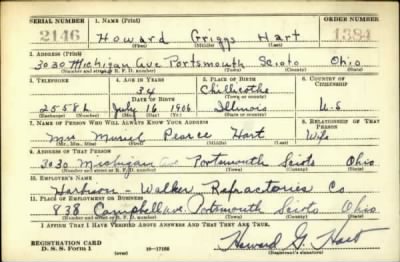 SERIAL NUMBER 1. NAME (Print) ORDER NUMBER
2146 Howard Griggs Hart 1384
(First) (Middle) (Last)
2. ADDRESS (Print)
3030 Michigan Ave Portsmouth Scioto Ohio
(Number and street or R. F. D. number) (Town) (County) (State)
3. TELEPHONE 4. AGE IN YEARS 5. PLACE OF BIRTH 6. COUNTRY OF CITIZENSHIP
34 Chillicothe
DATE OF BIRTH (Town or county)
2558L July 16 1906 Illinois U-S
(Exchange) (Number) (Mo.) (Day) (Yr.) (State or country)
7. NAME OF PERSON WHO WILL ALWAYS KNOW YOUR ADDRESS 8. RELATIONSHIP OF THAT PERSON
Mrs Muriel Pearce Hart Wife
(Mr., Mrs., Miss) (First) (Middle) (Last)
9. ADDRESS OF THAT PERSON
3030 Michigan Ave Portsmouth Scioto Ohio
(Number and street or R. F. D. number) (Town) (County) (State)
10. EMPLOYER'S NAME
Harbison - Walker Refractories Co
11. PLACE OF EMPLOYMENT OR BUSINESS
838 Campbell ave. Portsmouth Scioto Ohio
(Number and street or R. F. D. number) (Town) (County) (State)
I AFFIRM THAT I HAVE VERIFIED ABOVE ANSWERS AND THAT THEY ARE TRUE.
REGISTRATION CARD
D. S. S. Form 1 (over) Howard G. Hart
(Registrant's signature)